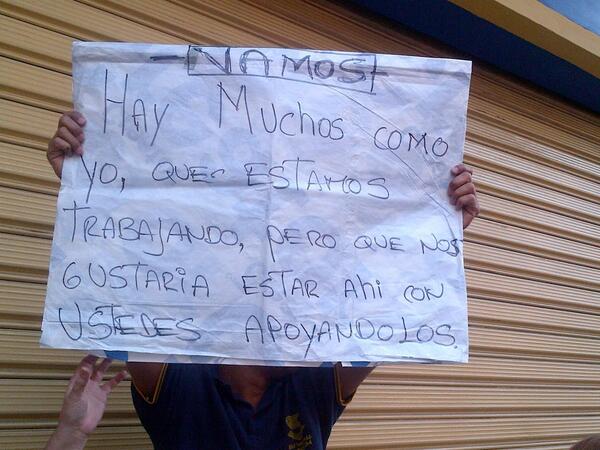 VAMOS
HAY MUCHOS COMO
YO, QUE ESTAMOS
TRABAJANDO, PERO QUE NOS
GUSTARIA ESTAR AHI CON
USTEDES APOYANDOLOS.